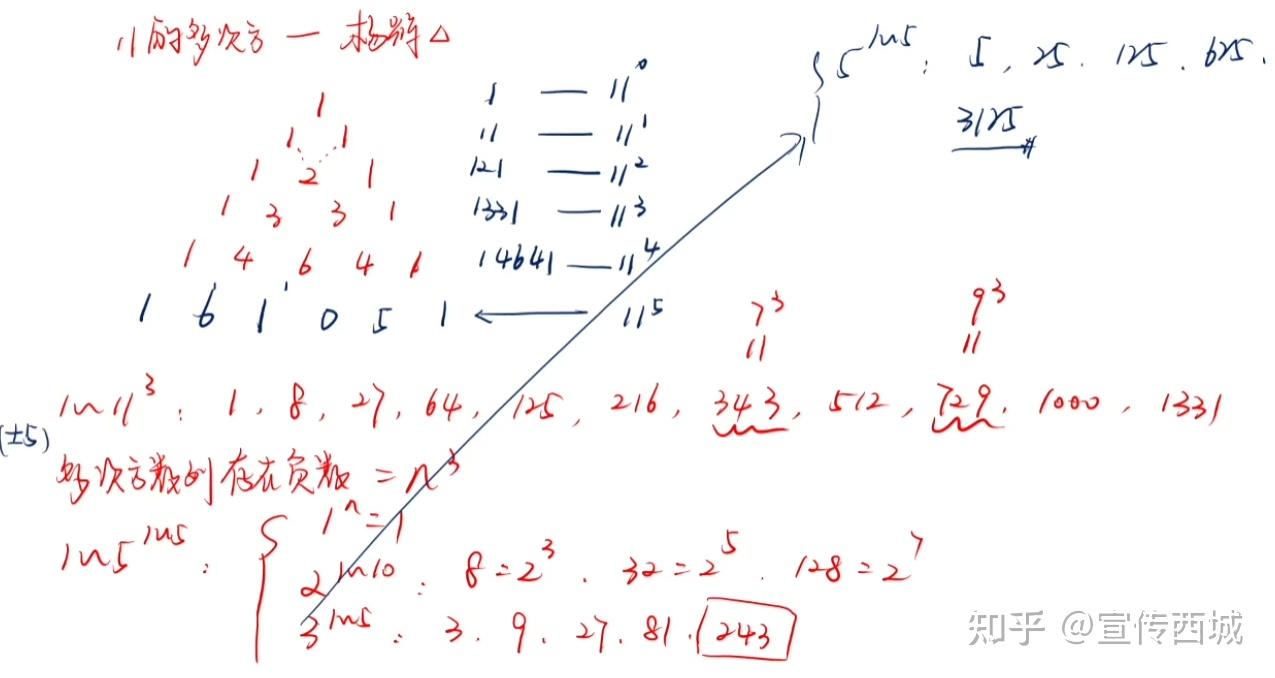 11的多次方 — 杨辉△
1
1 1
1 2 1
1 3 3 1
1 4 6 4 1
1 6 1 0 5 1 ← 11^5
1 — 11^0
11 — 11^1
121 — 11^2
1331 — 11^3
14641 — 11^4
{ 5^1~5 : 5, 25. 125. 625.
3125
7^3 9^3
11 11
1~11^3 : 1, 8, 27, 64, 125, 216, 343, 512, 729. 1000, 1331
(±5)
多次方数列存在负数 = n^3
1~5^1~5 : { 1^n=1
2^1~10 : 8=2^3. 32=2^5. 128=2^7
3^1~5 : 3. 9. 27. 81. 243
知乎 @宣传西城